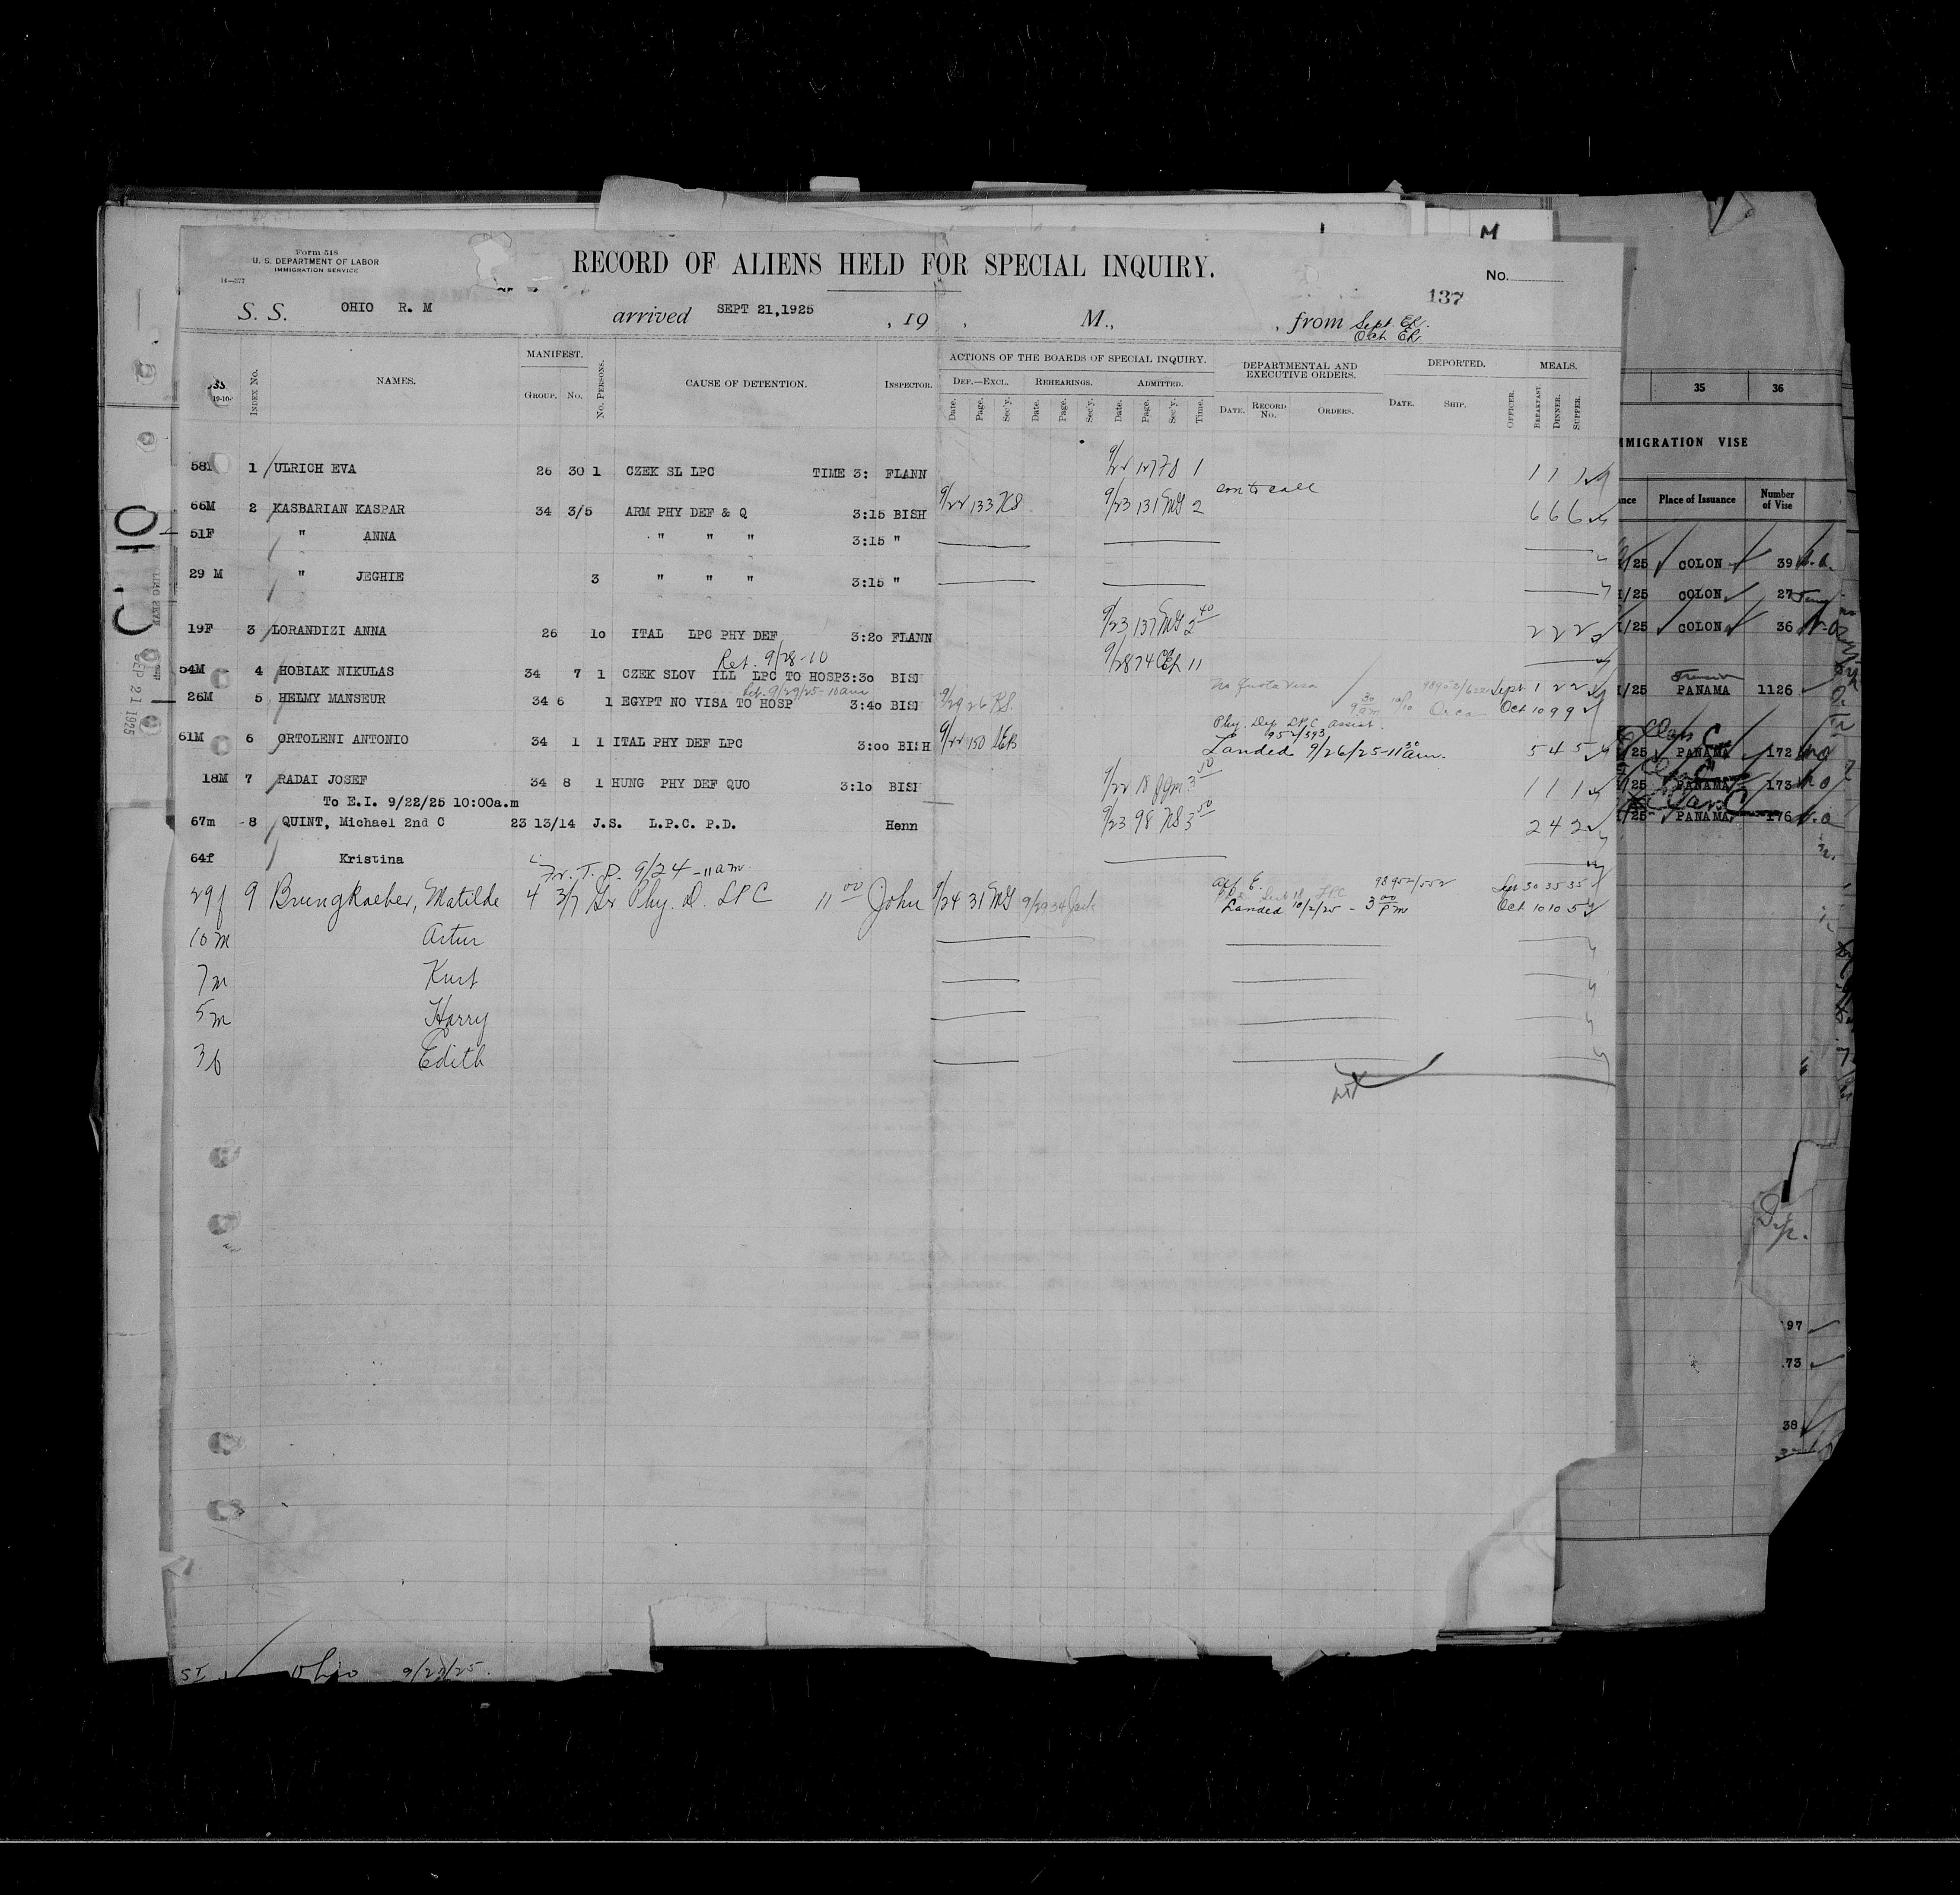 Form 518
U. S. DEPARTMENT OF LABOR
IMMIGRATION SERVICE
14—377
RECORD OF ALIENS HELD FOR SPECIAL INQUIRY.
No.
137
S. S. OHIO R. M arrived SEPT 21,1925 , 19 , M., , from Sept. ER.
Oct ER
INDEX NO. NAMES. MANIFEST. GROUP. NO. NO. PERSONS. CAUSE OF DETENTION. INSPECTOR. ACTIONS OF THE BOARDS OF SPECIAL INQUIRY. DEPARTMENTAL AND EXECUTIVE ORDERS. DEPORTED. MEALS.
DEF.—EXCL. REHEARINGS. ADMITTED.
Date. Page. Sec'y. Date. Page. Sec'y. Date. Page. Sec'y. Time. DATE. RECORD NO. ORDERS. DATE. SHIP. OFFICER. BREAKFAST. DINNER. SUPPER.
58F 1 ULRICH EVA 26 30 1 CZEK SL LPC TIME 3: FLANN 1 1 1
66M 2 KASBARIAN KASPAR 34 3/5 ARM PHY DEF & Q 3:15 BISH 9/22 133 9/23 131 2 6 6 6
51F " ANNA " " " 3:15 "
29 M " JEGHIE 3 " " " 3:15 "
19F 3 LORANDIZI ANNA 26 10 ITAL LPC PHY DEF 3:20 FLANN 9/23 137 2 40 2 2 2
Ret. 9/28-10
54M 4 HOBIAK NIKULAS 34 7 1 CZEK SLOV ILL LPC TO HOSP 3:30 BISH 9/28 74 11
Ret. 9/29/25-10am
26M 5 HELMY MANSEUR 34 6 1 EGYPT NO VISA TO HOSP 3:40 BISH 9/29 26 No Quota Visa Sept 1 2 2
Oct 10 9 9
Phy. Def LPC assist.
61M 6 ORTOLENI ANTONIO 34 1 1 ITAL PHY DEF LPC 3:00 BISH 9/22 150 Landed 9/26/25-11 30 am. 5 4 5
18M 7 RADAI JOSEF 34 8 1 HUNG PHY DEF QUO 3:10 BISH 9/22 18 3 50 1 1 1
To E.I. 9/22/25 10:00a.m
67m 8 QUINT, Michael 2nd C 23 13/14 J.S. L.P.C. P.D. Henn 9/23 98 3 50 2 4 2
64f Kristina
9/24 -11am.
29f 9 Brungkaeber, Matilde 4 3/7 Gr Phy. D. LPC 11 00 John 9/24 31 9/29 34 98952/552 Sep 30 35 35
Landed 10/2/25 - 3 00 Pm Oct 10 10 5
10m Artur
7m Kurt
5m Harry
3f Edith
Ohio 9/21/25.
SEP 21 1925
35 36
IMMIGRATION VISE
Place of Issuance Number of Vise
/25 COLON 39
/25 COLON 27
/25 COLON 36
/25 PANAMA 1126
/25 PANAMA 172
/25 PANAMA 173
/25 PANAMA 176
Dep.
97
73
38